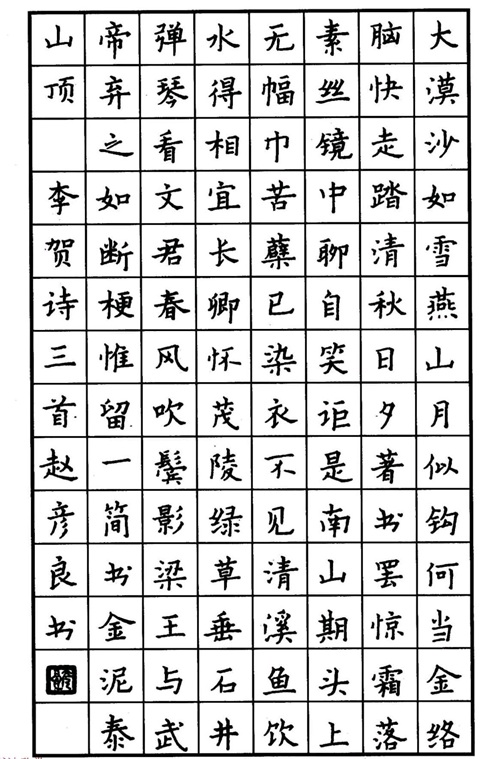 大漠沙如雪燕山月似钩何当金络
脑快走踏清秋日夕著书罢惊霜落
素丝镜中聊自笑讵是南山期头上
无幅巾苦蘖已染衣不见清溪鱼饮
水得相宜长卿怀茂陵绿草垂石井
弹琴看文君春风吹鬓影梁王与武
帝弃之如断梗惟留一简书金泥泰
山顶 李贺诗三首赵彦良书